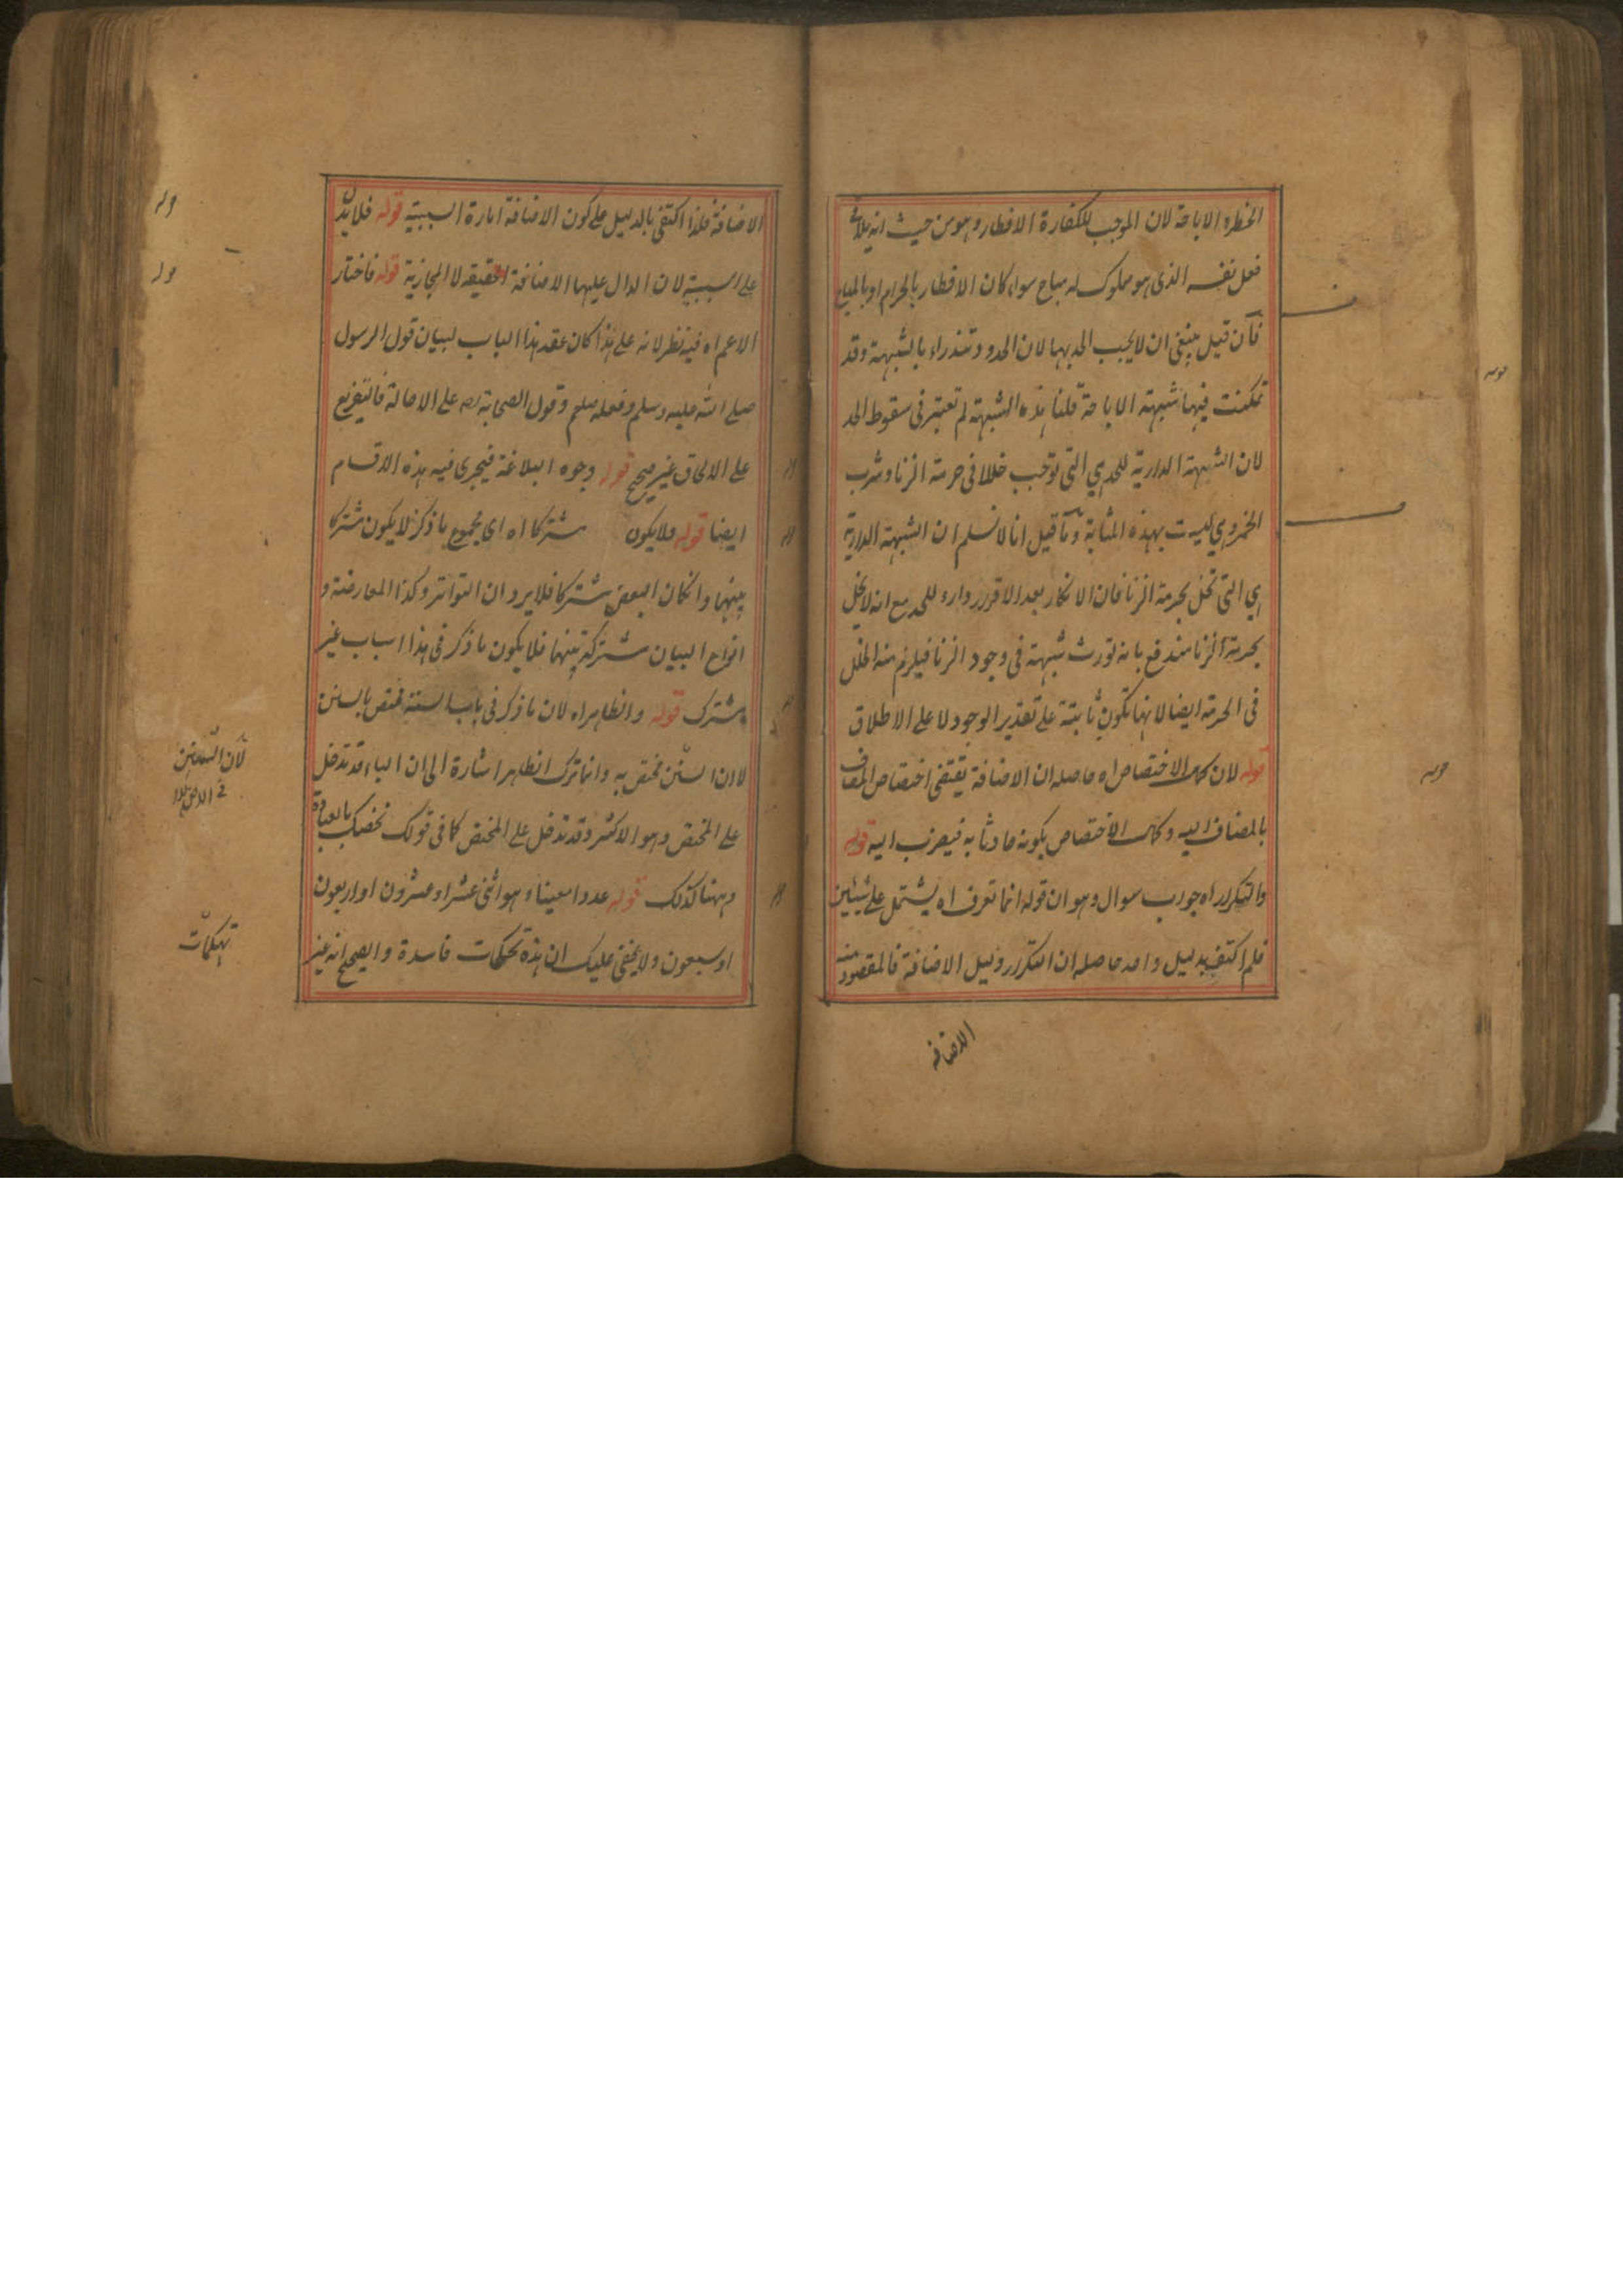 الحظر والاباحة لان الموجب للكفارة الافطار وهو من حيث انه يلاقى
فعل نفسه الذى هو مملوك له مباح سواء كان الافطار بالحرام او بالمباح
فان قيل ينبغى ان لا يجب الحد بها لان الحدود تندراء بالشبهة وقد
تمكنت فيها شبهة الاباحة قلنا هذه الشبهة لم تعتبر فى سقوط الحد
لان الشبهة الدارية للحد هى التى توجب خللا فى حرمة الزنا وشرب
الخمر وهى ليست بهذه المثابة وما قيل انا لا نسلم ان الشبهة الدارية
هى التى تخل بحرمة الزنا فان الانكار بعد الاقرار دارء للحد مع انه لا يخل
بحرمة الزنا مندفع بانه تورث شبهة فى وجود الزنا فيلزم منه الخلل
فى الحرمة ايضا لانها تكون ثابتة على تقدير الوجود لا على الاطلاق
قوله لان كمال الاختصاص اه حاصله ان الاضافة يقتضى اختصاص المضاف
بالمضاف اليه وكمال الاختصاص بكونه حادثا به فيصرف اليه قوله
والتكرار اه جواب سوال وهو ان قوله انما تعرف اه يشتمل على شيئين
فلم اكتفى بدليل واحد حاصله ان التكرار دليل الاضافة فالمقصود منه
الاضافة
الاضافة فلذا اكتفى بالدليل على كون الاضافة امارة السببية قوله فلا يدل
على السببية لان الدال عليها الاضافة الحقيقة لا المجازية قوله فاختار
الاعم اه فيه نظر لانه على هذا كان عقد هذا الباب لبيان قول الرسول
صلى الله عليه وسلم وفعله صلعم وقول الصحابة رضه على الاصالة فالتفريع
على الالحاق غير صحيح قوله وجوه البلاغة فيجرى فيه هذه الاقسام
ايضا قوله فلا يكون مشتركا اه اى مجموع ما ذكر لا يكون مشتركا
بينهما وانكان البعض مشتركا فلا يرد ان التواتر وكذا المعارضة و
انواع البيان مشتركة بينهما فلا يكون ما ذكر فى هذا الباب غير
مشترك قوله والظاهر اه لان ما ذكر فى باب السنة مختص بالسنن
لا ان السنن مختص به وانما ترك الظاهر اشارة الى ان الباء قد تدخل
على المختص وهو الاكثر وقد تدخل على المختص كما فى قولك نخصك بالعبادة
وههنا كذلك قوله عددا معينا وهو اثنى عشر او عشرون او اربعون
او سبعون ولا يخفى عليك ان هذه تحكمات فاسدة والصحيح انه غير